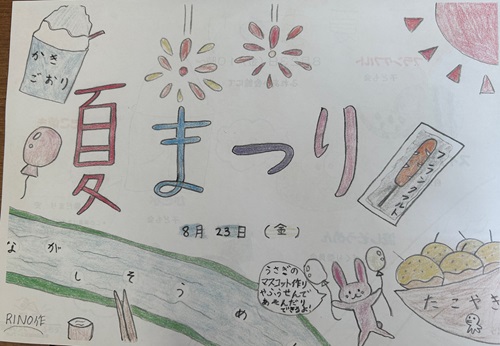 かき
ごおり
夏まつり
フランクフルト
8月 23日 (金)
ながしそうめん
うさぎの
マスコット作り
やふうせんで
あそんだり
できるよ!
たこやき
RINO作